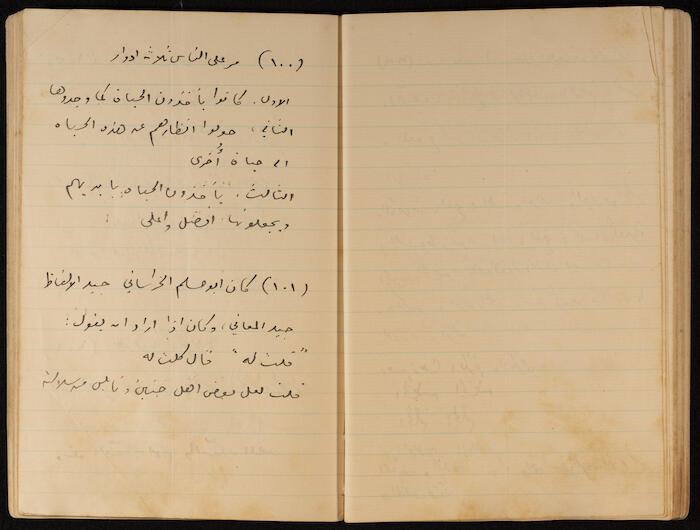 (١٠٠) مر على الناس ثلاثة ادوار
الاول. كانوا يأخذون الحياة كما وجدوها
الثاني، حولوا انظارهم عن هذه الحياه
الى حياة أُخرى
الثالث. يأخذون الحياه بايديهم
ويجعلونها افضل واعلى :
(١٠١) كان ابو مسلم الخراساني جيد الالفاظ
جيد المعاني، وكان اذا اراد ان يقول:
"قلت له" قال كلت له
قلت لعل بعض اهل جنين ونابلس من سلالته